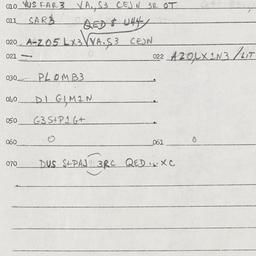 010 VUS FAR3 VA,S3 CEJN SR OT
011 SAR3 QED $ U44
020 A-Z05LX3 VA,S3 CEJN
021 — 022 AZ0,LX1N3/LIT
030 PLOMB3 .
040 DI GIM1N .
050 G3S+P1G+ .
060 0 061 0
070 DUS S+PAJ 3RC QED... XC